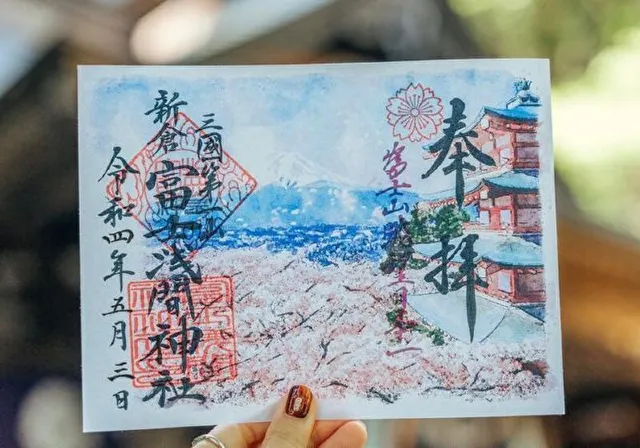 奉拝
富士山 日本一
三國第一山
新倉富士浅間神社
令和四年五月三日